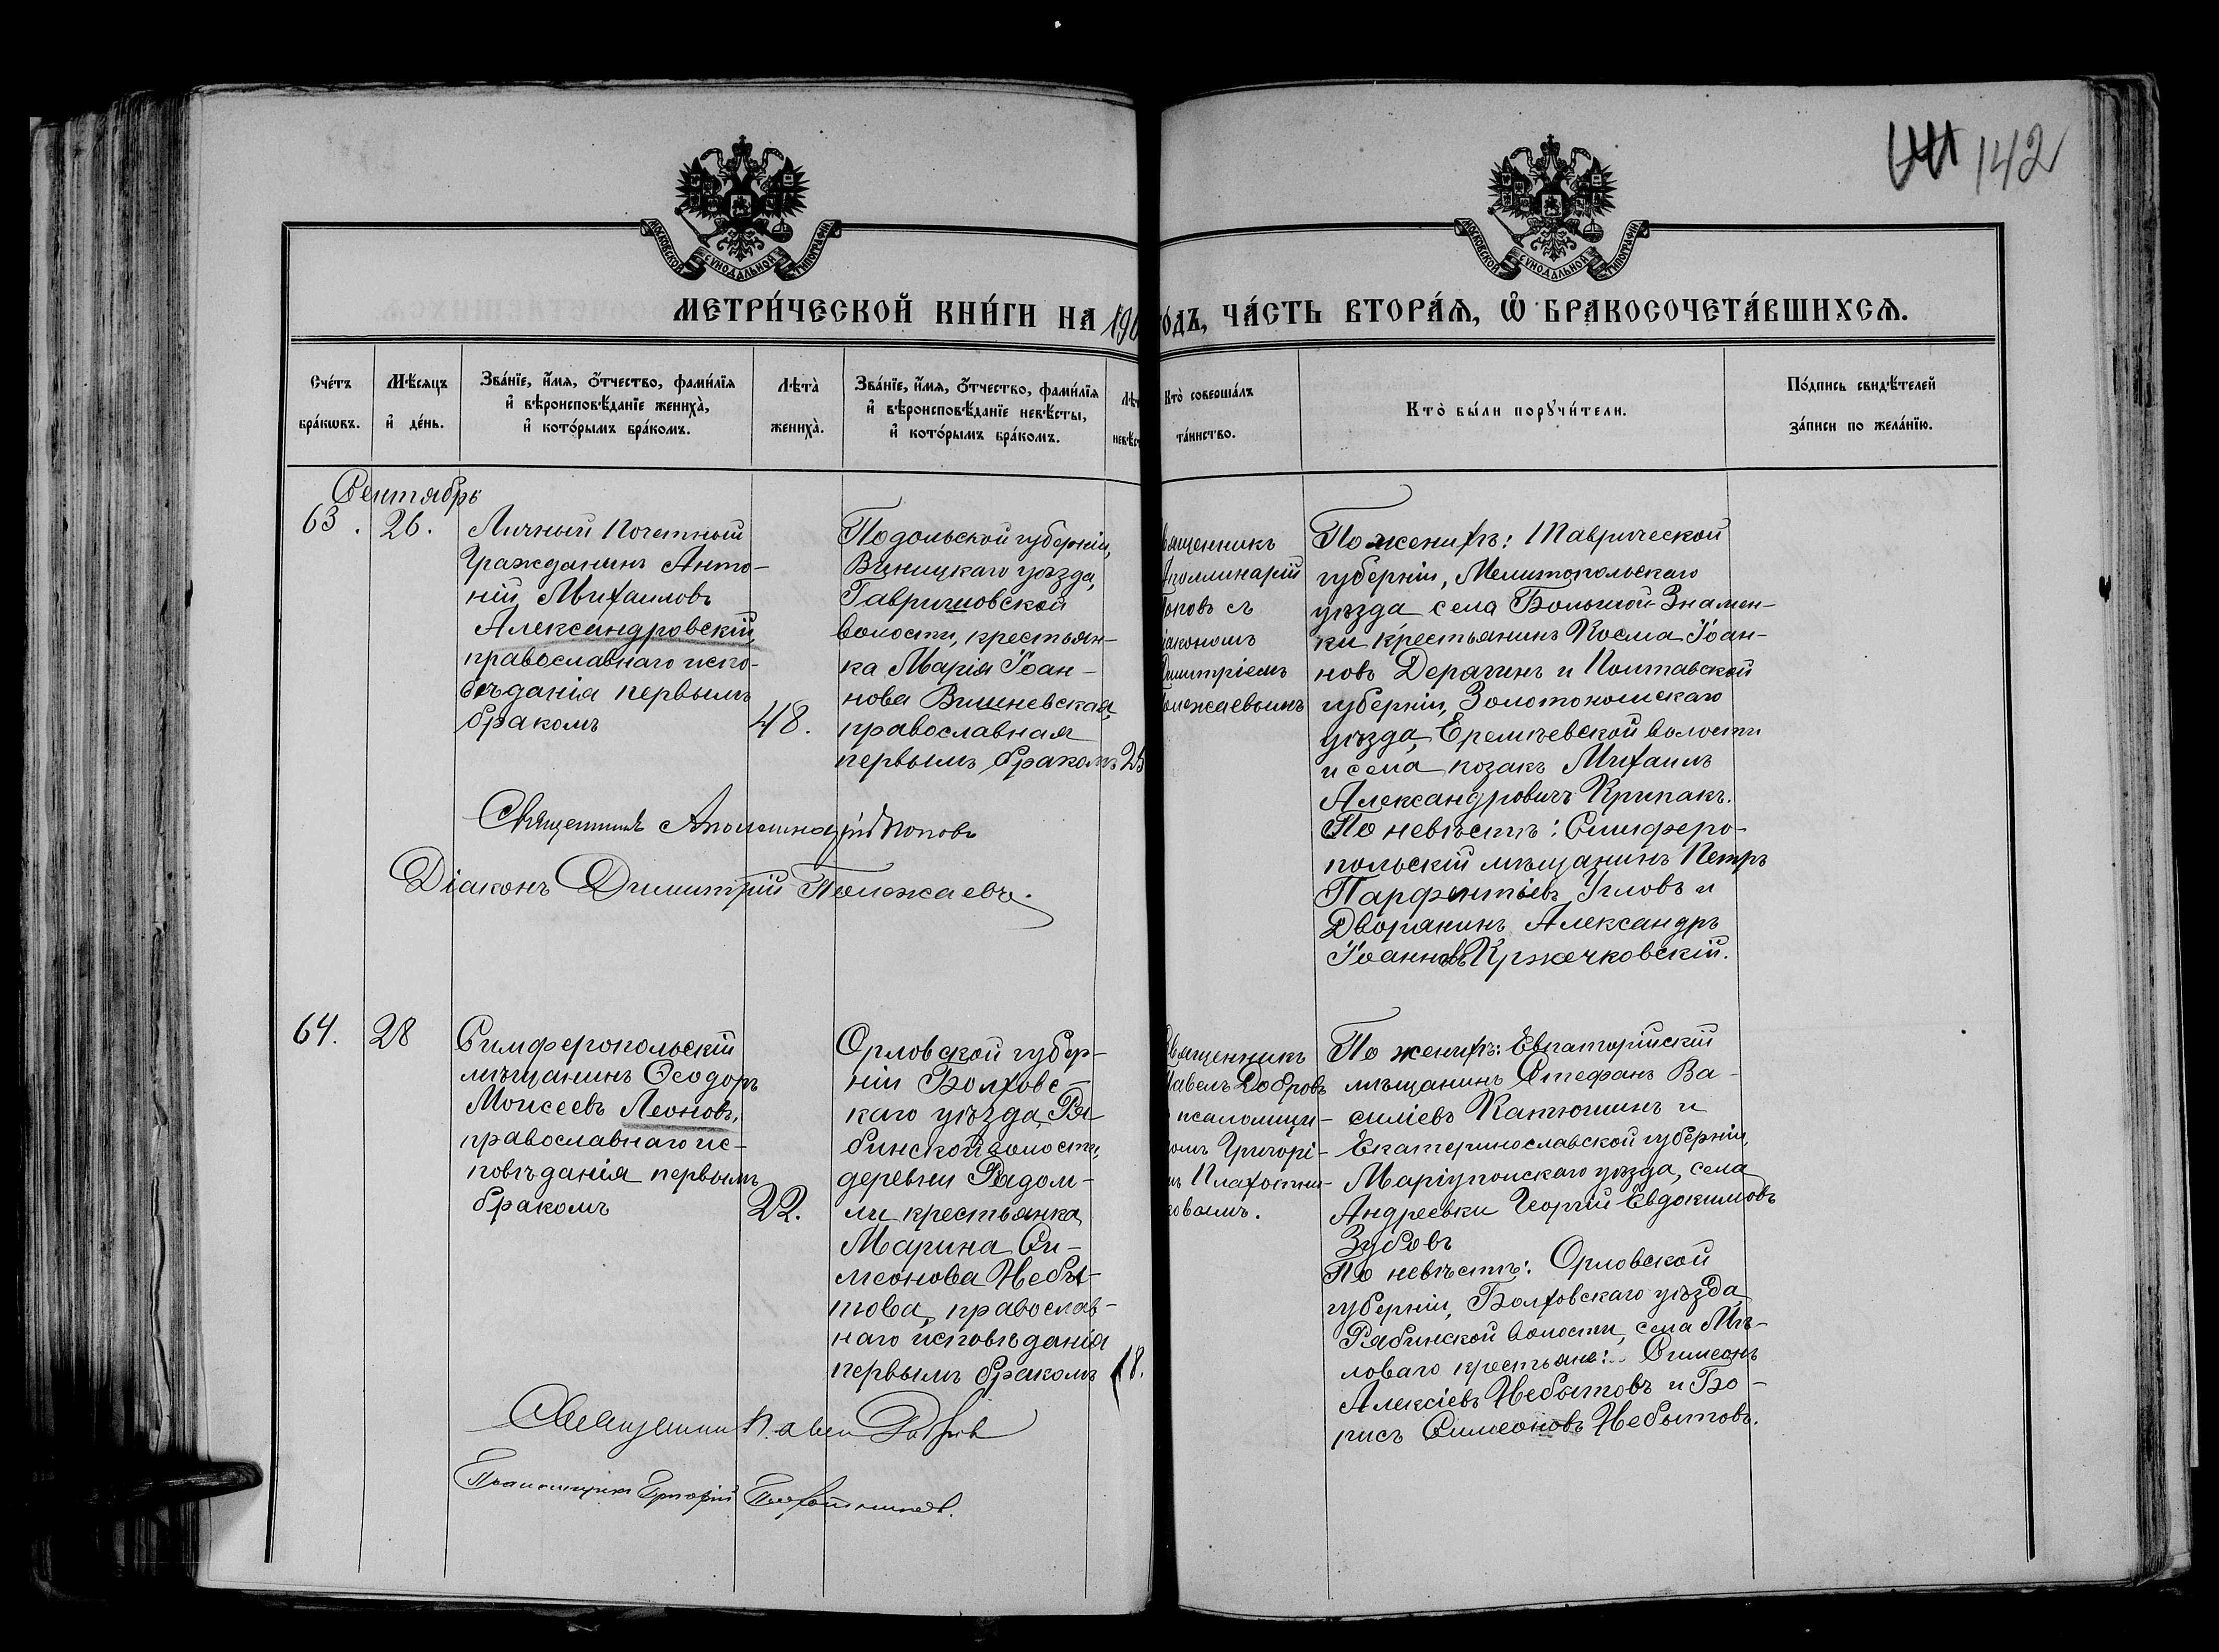 142
МОСКОВСКОЙ СѴНОДАЛЬНОЙ ТИПОГРАФІИ
МОСКОВСКОЙ СѴНОДАЛЬНОЙ ТИПОГРАФІИ
МЕТРИ́ЧЕСКОЙ КНИ́ГИ НА 190
О́ДЪ, ЧА́СТЬ ВТОРА́Я, Ѽ БРАКОСОЧЕТА́ВШИХСЯ.
Сче́тъ
бра́кѡвъ.
Мѣ́сяцъ
и҆ де́нь.
Зва́нїе, и҆́мя, ѻ҆́тчество, фами́лїя
и҆ вѣроисповѣ́данїе жениха̀,
и҆ кото́рымъ бра́комъ.
Лѣта̀
жениха̀.
Зва́нїе, и҆́мя, ѻ҆́тчество, фами́лїя
и҆ вѣроисповѣ́данїе невѣ́сты,
и҆ кото́рымъ бра́комъ.
Лѣт
невѣст
Кто̀ соверша́лъ
та́инство.
Кто̀ бы́ли порꙋчи́тели.
По́дпись свидѣ́телей
за́писи по жела́нїю.
Сентябрь
63.
26.
Личный Почетный
Гражданинъ Анто-
ній Михаиловъ
Александровскій,
православнаго испо-
вѣданія первымъ
бракомъ
48.
Подольской губерніи,
Виницкаго уѣзда,
Гавришовской
волости, крестьян-
ка Марія Іоан-
нова Вишневская,
православная
первымъ бракомъ
25
вященникъ
Аполлинарій
оповъ съ
іакономъ
Димитріемъ
олежаевымъ
По женихѣ: Таврической
губерніи, Мелитопольскаго
уѣзда села Большой-Знамен-
ки крестьянинъ Косма Іоан-
новъ Дерагинъ и Полтавской
губерніи, Золотоношскаго
уѣзда, Еремѣевской волости
и села козакъ Михаилъ
Александровичъ Крипакъ.
По невѣстѣ: Симферо-
польскій мѣщанинъ Петръ
Парфентіевъ Угловъ и
Дворянинъ Александръ
Іоанновъ Кржечковскій.
Священникъ Аполлинарій Поповъ
Діаконъ Димитрій Полежаевъ.
64.
28
Симферопольскій
мѣщанинъ Ѳеодоръ
Моисеевъ Леоновъ,
православнаго ис-
повѣданія первымъ
бракомъ
22.
Орловской губер-
ніи Болховс-
каго уѣзда, Ря-
бинской волости,
деревни Радом-
ли крестьянка
Марина Си-
меонова Небы-
това, православ-
наго исповѣданія
первымъ бракомъ
18.
Священникъ
Павелъ Добровъ
псаломщи-
омъ Григорі-
мъ Плахотни-
ковымъ.
По женихѣ: Евпаторійскій
мѣщанинъ Стефанъ Ва-
силіевъ Катюшинъ и
Екатеринославской губерніи,
Маріупольскаго уѣзда, села
Андреевки Георгій Евдокимовъ
Зубовъ
По невѣстѣ: Орловской
губерніи, Болховскаго уѣзда
Рябинской волости, села Мѣ-
ловаго крестьяне: Симеонъ
Алексіевъ Небытовъ и Бо-
рисъ Симеоновъ Небытовъ.
Священникъ Павелъ Добровъ
Псаломщикъ Григорій Плахотниковъ.